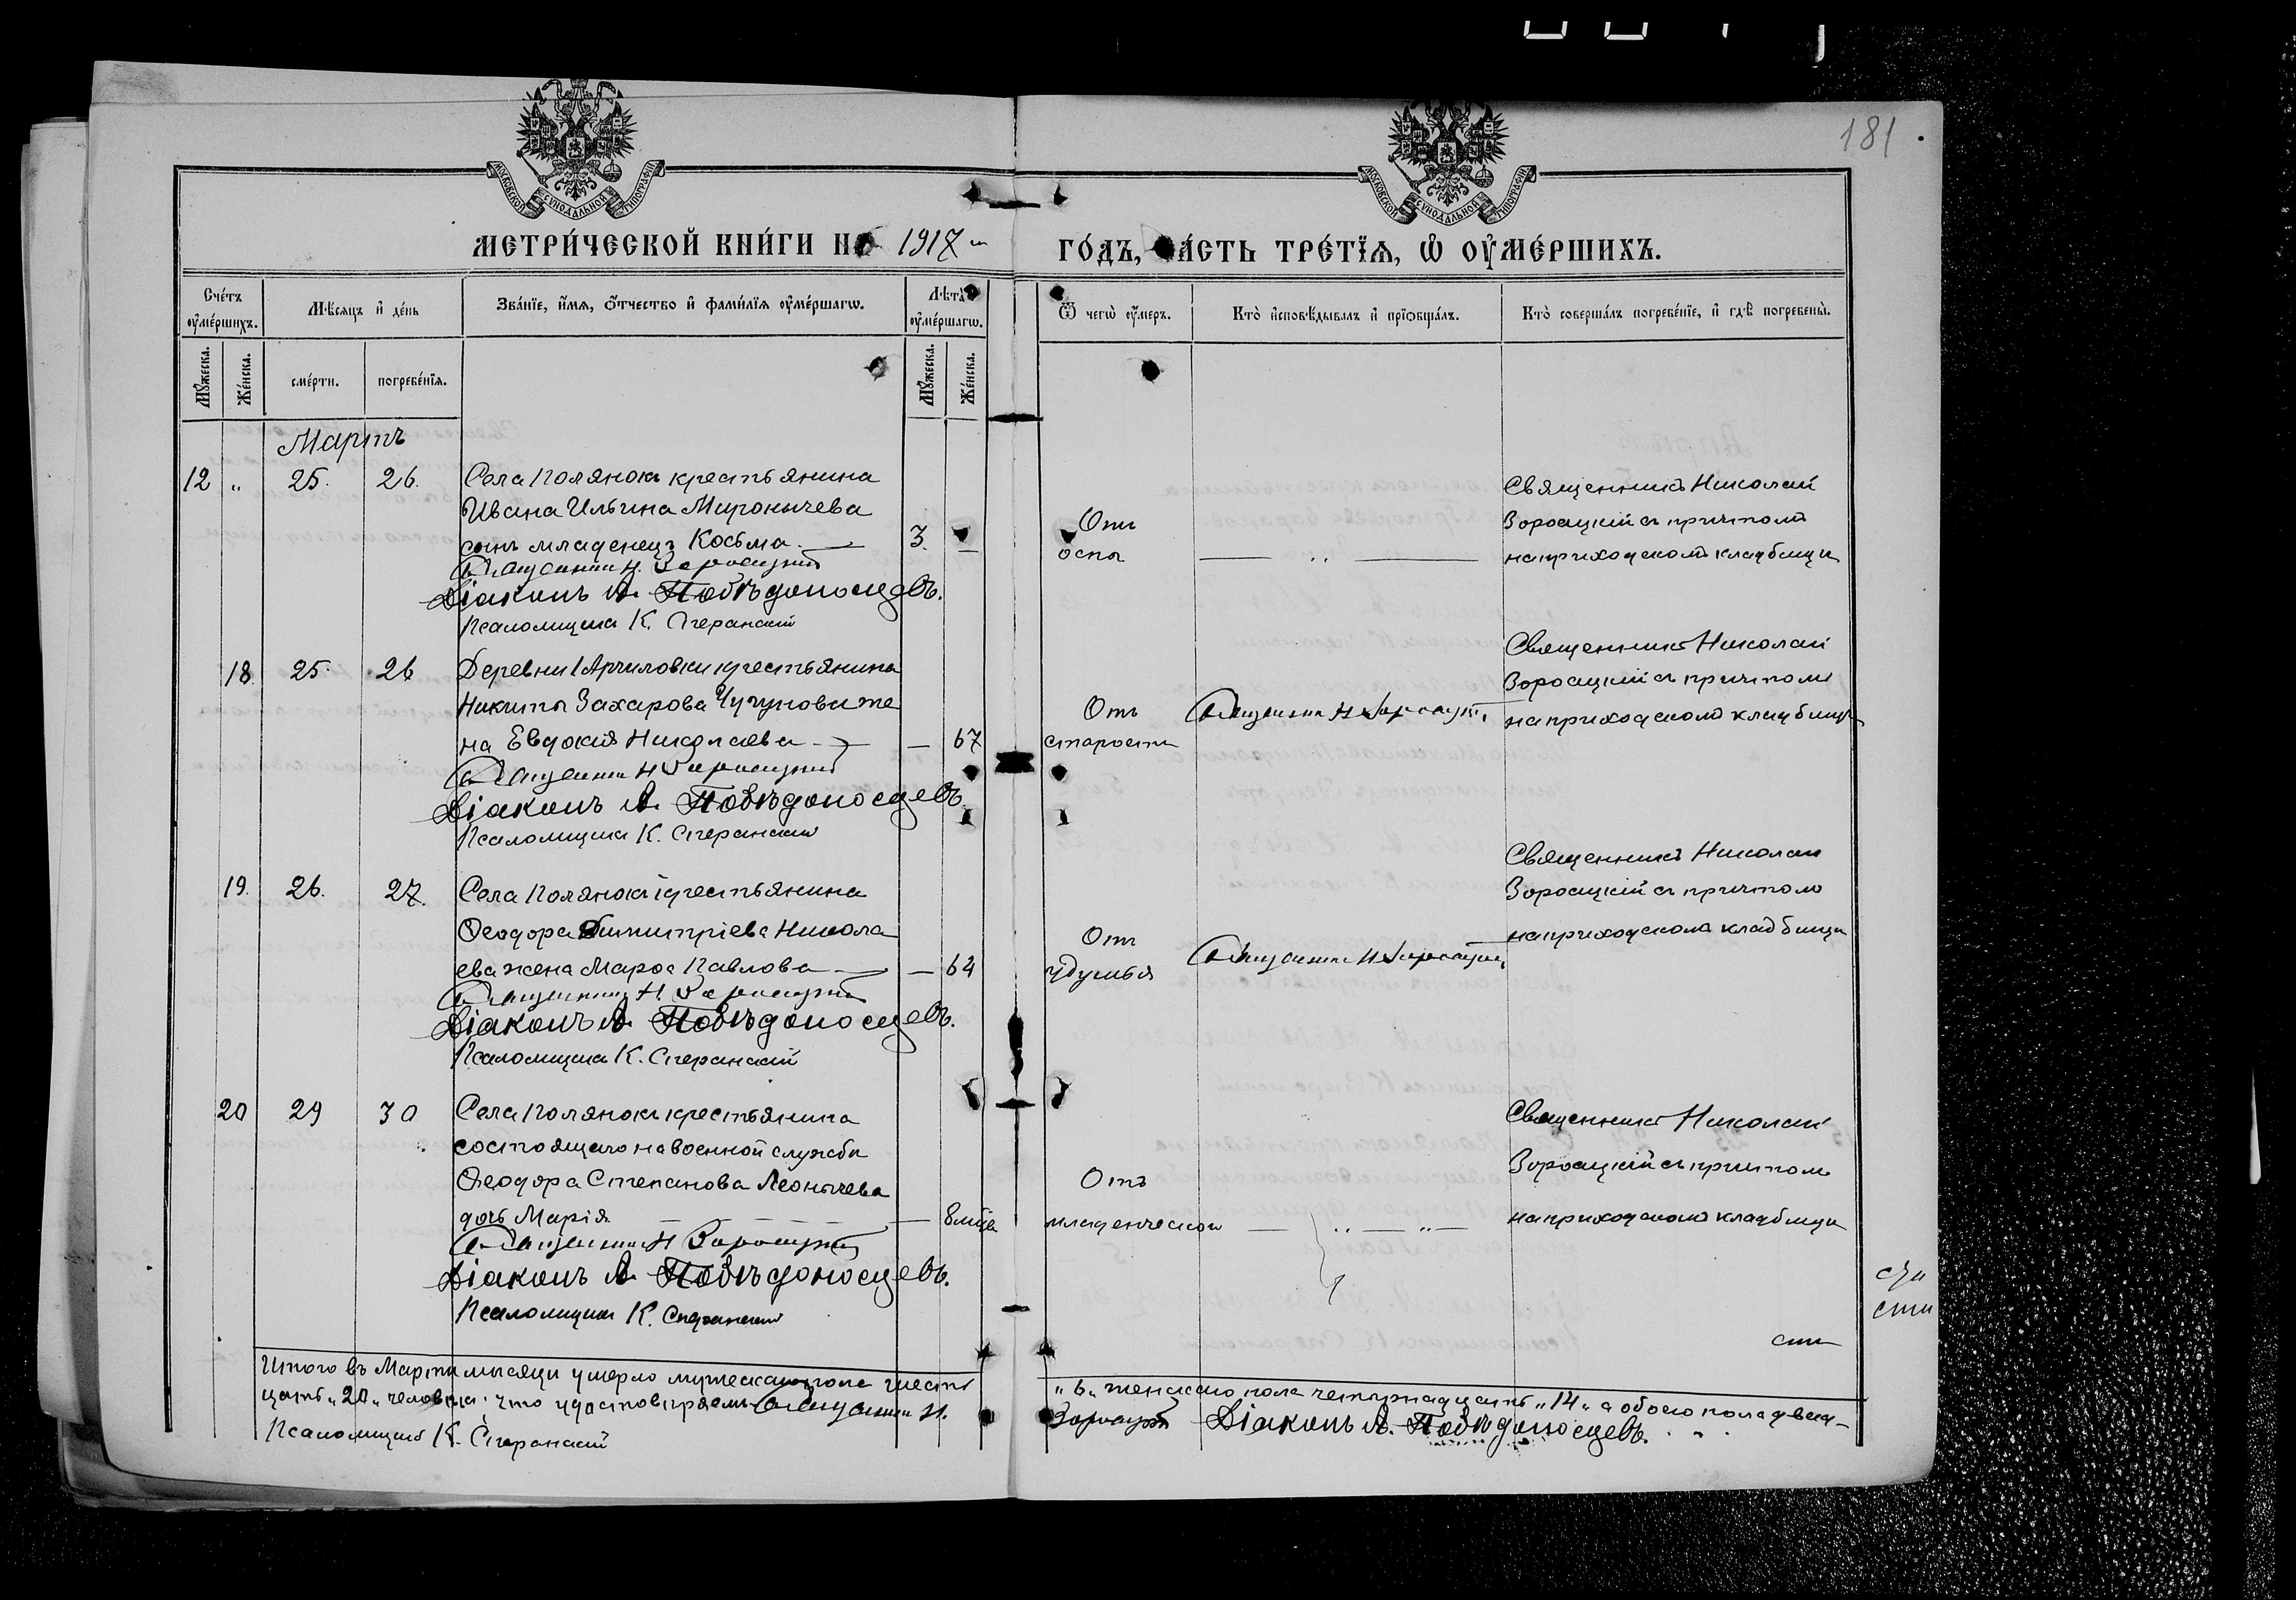 181
МОСКОВСКОЙ СѴНОДАЛЬНОЙ ТИПОГРАФІИ
МОСКОВСКОЙ СѴНОДАЛЬНОЙ ТИПОГРАФІИ
МЕТРИ́ЧЕСКОЙ КНИ́ГИ НА 1917 ГО́ДЪ, ЧА́СТЬ ТРЕ́ТЇѦ, Ѡ ОУМЕ́РШИХЪ.
Сче́тъ оуме́ршихъ.
Мѣ́сѧцъ и де́нь
Зва́нїе, и́мѧ, ѻ́тчество и фами́лїѧ оуме́ршагѡ.
Лѣта̀ оуме́ршагѡ.
Ѿ чегѡ̀ оу́меръ.
Кто̀ исповѣ́дывалъ и прїѡбща́лъ.
Кто̀ соверша́лъ погребе́нїе, и гдѣ̀ погребены̀.
Мꙋ́жеска.
Же́нска.
сме́рти.
погребе́нїѧ.
Мꙋ́жеска.
Же́нска.
Мартъ
12 „ 25. 26. Села Полянокъ крестьянина
Ивана Ильина Миронычева
сынъ младенецъ Косьма 3.
Священникъ Н. Зороацкій
Діаконъ А. Побѣдоносцевъ.
Псаломщикъ К. Сперанскій
Отъ
оспы
Священникъ Николай
Зороацкій съ причтомъ
на приходскомъ кладбищѣ
18. 25. 26 Деревни крестьянина
Никиты Захарова Чугунова же
на Евдокія Николаева — 67
Священникъ Н Зороацкій
Діаконъ А. Побѣдоносцевъ.
Псаломщикъ К. Сперанскій
Отъ
старости
Священникъ Н Зороацкій
Священникъ Николай
Зороацкій съ причтомъ
на приходскомъ кладбищѣ
19. 26. 27. Села Полянокъ крестьянина
Ѳеодора Димитріева Никола
ева жена Марѳа Павлова — 64
Священникъ Н. Зороацкій
Діаконъ А. Побѣдоносцевъ.
Псаломщикъ К. Сперанскій
Отъ
удушья
Священникъ Н Зороацкій
Священникъ Николай
Зороацкій съ причтомъ
на приходскомъ кладбищѣ
20 29 30 Села Полянокъ крестьянина
состоящаго на военной службѣ
Ѳеодора Степанова Леонычева
дочь Марія — 8 мѣс
Священникъ Н Зороацкій
Діаконъ А. Побѣдоносцевъ.
Псаломщикъ К. Сперанскій
Отъ
младенческой
Священникъ Николай
Зороацкій съ причтомъ
на приходскомъ кладбищѣ
Итого въ Мартѣ мѣсяцѣ умерло мужескаго пола шесть „6„ женскаго пола четырнадцать „14„ а обоего пола двад-
цать „20„ человѣкъ; что удостовѣряемъ Священникъ Н. Зороацкій Діаконъ А. Побѣдоносцевъ.
Псаломщикъ К. Сперанскій